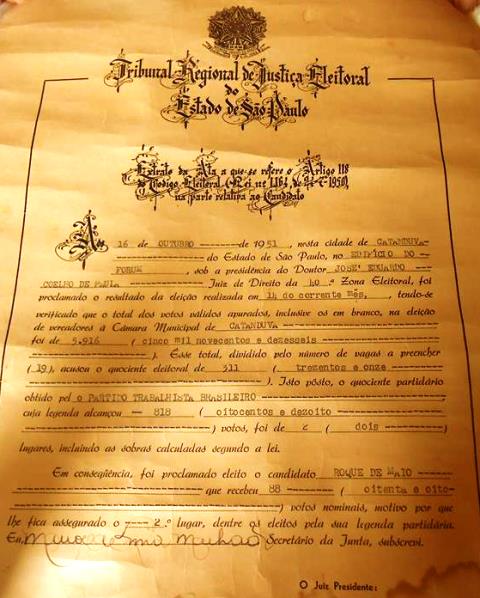 Tribunal Regional de Justiça Eleitoral
do
Estado de São Paulo
Extrato da Ata a que se refere o Artigo 118
do Codigo Eleitoral (Lei nº 1.164, de 24-7-1950),
na parte relativa ao Candidato
Aos 16 de OUTUBRO de 1951, nesta cidade de CATANDUVA
do Estado de São Paulo, no EDIFÍCIO DO
FORUM, sob a presidência do Doutor JOSÉ EDUARDO
COELHO DE PAULA Juiz de Direito da 40.ª Zona Eleitoral, foi
proclamado o resultado da eleição realizada em 14 do corrente mês, tendo-se
verificado que o total dos votos válidos apurados, inclusive os em branco, na eleição
de vereadores à Câmara Municipal de CATANDUVA
foi de 5.916 ( cinco mil novecentos e dezesseis
). Esse total, dividido pelo número de vagas a preencher
(19), acusou o quociente eleitoral de 311 ( trezentos e onze
). Isto pôsto, o quociente partidário
obtido pelo PARTIDO TRABALHISTA BRASILEIRO
cuja legenda alcançou 818 ( oitocentos e dezoito
) votos, foi de 2 ( dois )
lugares, incluindo as sobras calculadas segundo a lei.
Em conseqüência, foi proclamado eleito o candidato ROQUE DE MAIO
que recebeu 88 ( oitenta e oito-
) votos nominais, motivo por que
lhe fica assegurado o 2.º lugar, dentre os eleitos pela sua legenda partidária.
Eu, Secretário da Junta, subscrevi.
O Juiz Presidente: